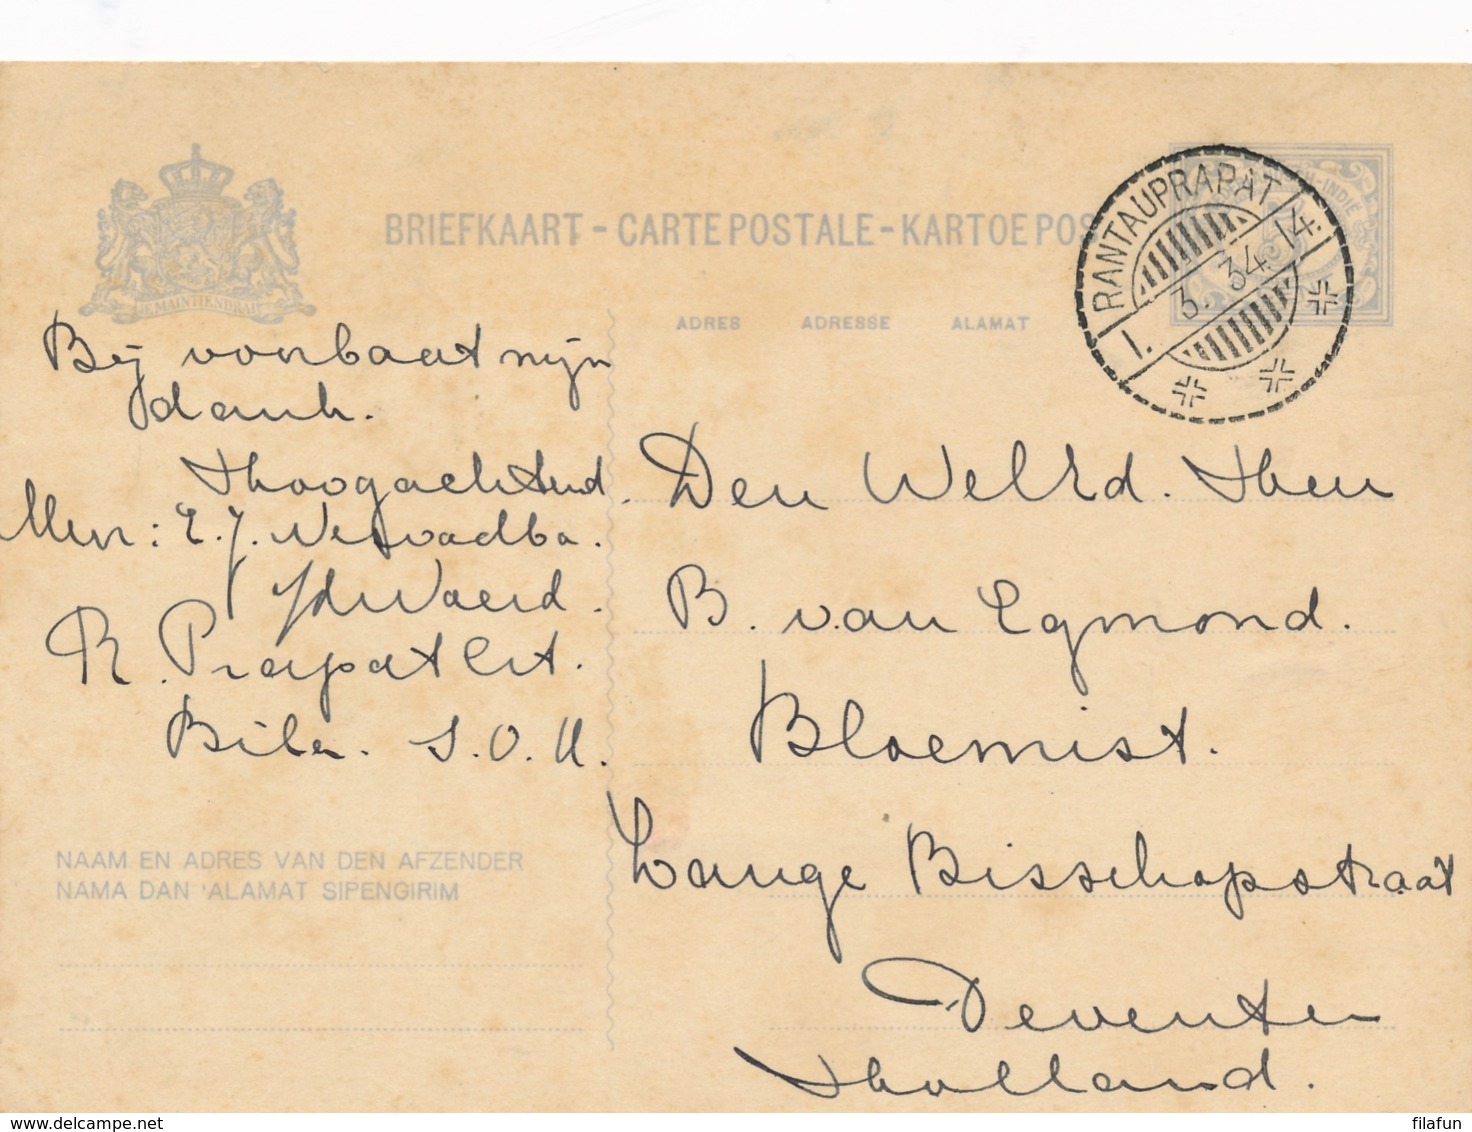 BRIEFKAART - CARTE POSTALE - KARTOE POS
JE MAINTIENDRAI
RANTAUPRAPAT
1. 3. 34. 14.
ADRES ADRESSE ALAMAT
Bij voorbaat mijn
dank.
Hoogachtend.
Mevr: E. J.
R. Prapat Est.
Bila. S.O.K.
NAAM EN ADRES VAN DEN AFZENDER
NAMA DAN ALAMAT SIPENGIRIM
Den WelEd. Heer
B. van Egmond.
Bloemist.
Lange Bisschopstraat
Deventer
Holland.
delcampe.net
filafun